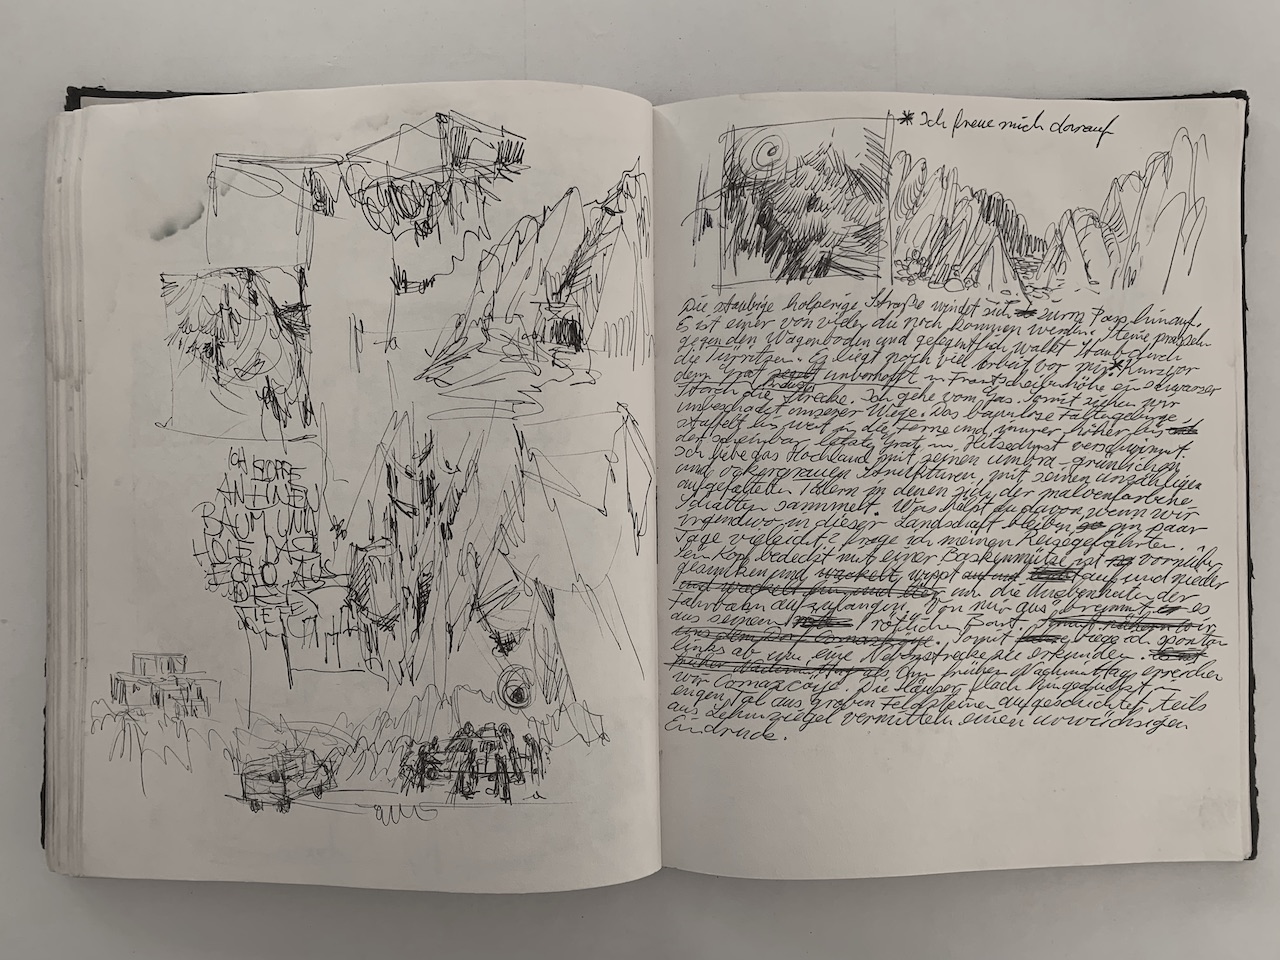 ICH STOPPE
AN EINEM
BAUM UND
TIEFE
* Ich freue mich darauf
Die staubige holperige Straße windet sich zum Pass hinauf.
Es ist einer von vielen die noch kommen werden. Steine prasseln
gegen den Wagenboden und gelegentlich wallt Staub durch
die Türritzen. Es liegt noch viel Arbeit vor mir.* Kurz vor
dem Grat unverhofft in Frontscheibenhöhe ein schwarzer
Storch die Strecke. Ich gehe vom Gas. Somit ziehen wir
unbeschadet unserer Wege. Das baumlose Faltengebirge
staffelt bis weit in die Ferne und immer höher bis
der scheinbar letzte Grat im Hitzedunst verschwimmt.
Ich liebe das Hochland mit seinen umbra-grünlichen
und ockergrauen Strukturen, mit seinen unzähligen
aufgefalteten Tälern in denen sich der malvenfarbene
Schatten sammelt. Was hälst du davon wenn wir
irgendwo in dieser Landschaft bleiben ein paar
Tage vielleicht? frage ich meinen Reisegefährten.
Sein Kopf bedeckt mit einer Baskenmütze ist vornüber
gesunken und wackelt, wippt auf und nieder
und wackelt hin und her um die Unebenheiten der
Fahrbahn aufzufangen. "Von mir aus" brummt er es
aus seinem rötlichen Bart. wir
Somit biege ich spontan
links ab um eine Nebenstrecke zu erkunden.
Am frühen Nachmittag erreichen
wir Comascoye. Die Häuser flach hingeduckt im
engen Tal aus groben Feldsteinen aufgeschichtet, teils
aus Lehmziegel vermitteln einen urwüchsigen
Eindruck.